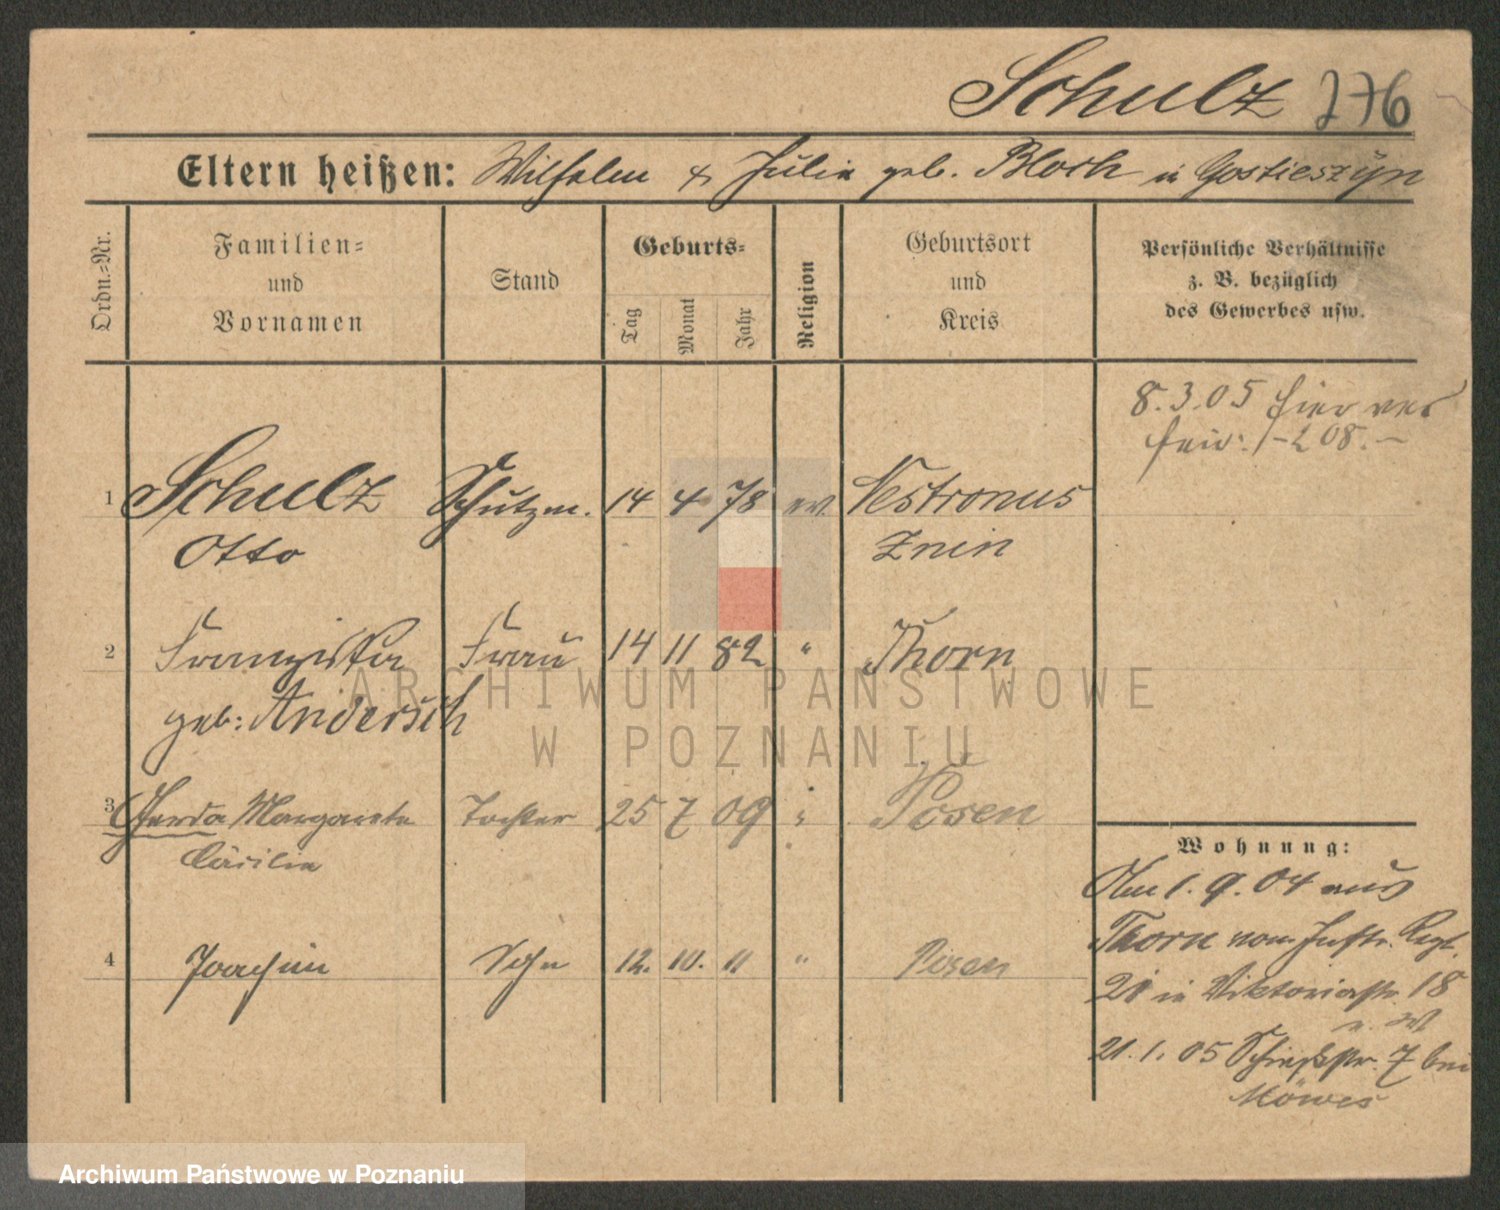 Schulz 276
Eltern heißen: Wilhelm & Julie geb. Bloch in Gostieszyn
Ordn.=Nr.
Familien=
und
Vornamen
Stand
Geburts=
Tag
Monat
Jahr
Religion
Geburtsort
und
Kreis
Persönliche Verhältnisse
z. B. bezüglich
des Gewerbes usw.
8.3.05 hier ver
heir:
1 Schulz Schutzm. 14 4 78 ev. Ustronus
Otto Znin
2 Franziska Frau 14 11 82 " Thorn
geb: Andersch
3 Gerda Margarete Tochter 25 7 09 " Posen
Cäcilie
4 Joachim Sohn 12. 10. 11 " Posen
Wohnung:
Am 1. 9. 04 aus
Thorn vom Inftr. Regt.
21 in Viktoriastr. 18
21. 1. 05 Schießstr. 7 bei
Möwes
ARCHIWUM PAŃSTWOWE
W POZNANIU
Archiwum Państwowe w Poznaniu